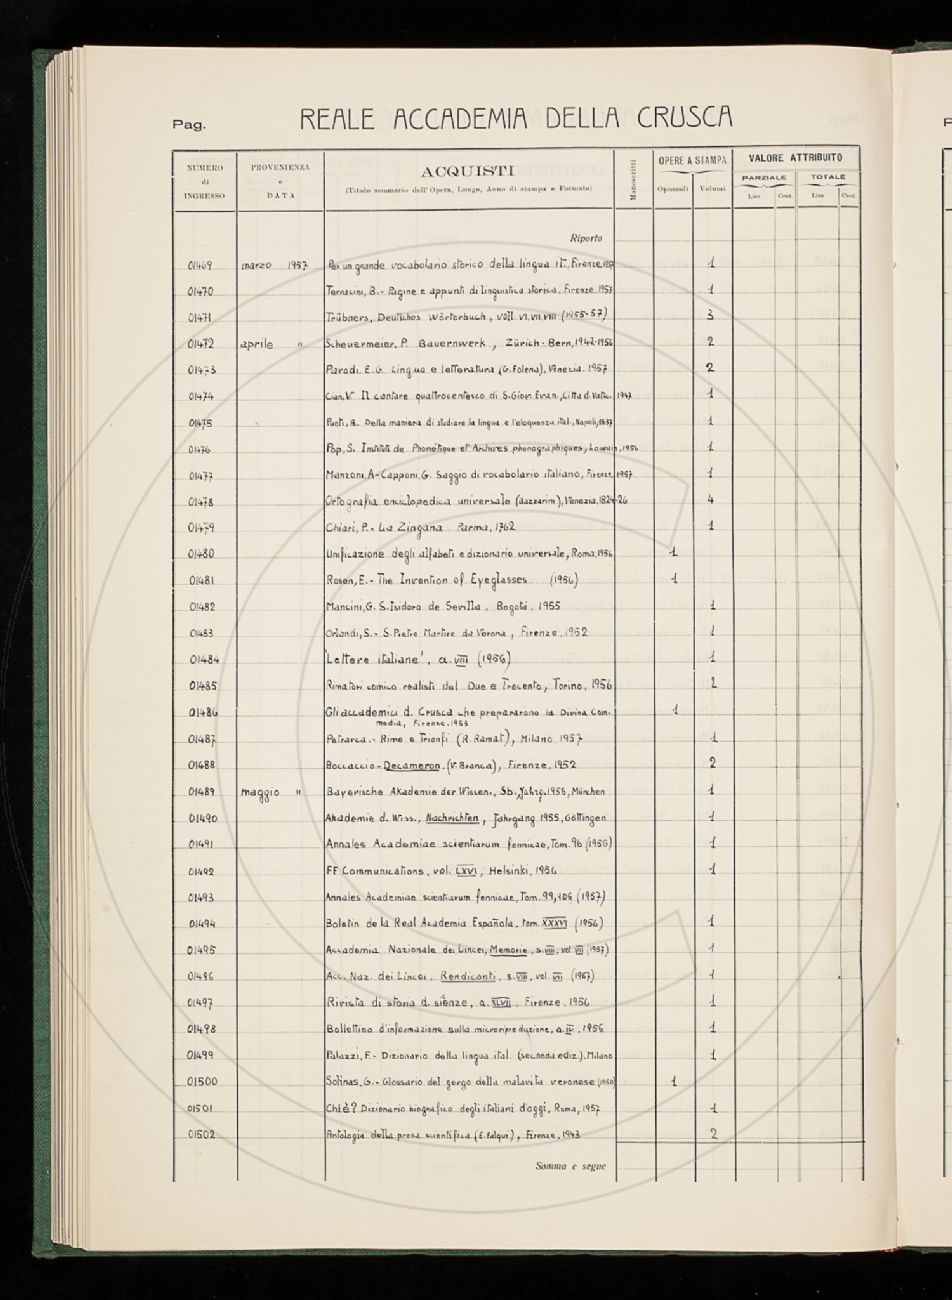 Pag. REALE ACCADEMIA DELLA CRUSCA
NUMERO di INGRESSO PROVENIENZA e DATA ACQUISTI (Titolo sommario dell'Opera, Luogo, Anno di stampa e Formato) Manoscritti OPERE A STAMPA Opuscoli Volumi VALORE ATTRIBUITO PARZIALE Lire Cent. TOTALE Lire Cent.
Riporto
01469 marzo 1957 Per un grande vocabolario storico della lingua it., Firenze, 1957 1
01470 Terracini, B.- Pagine e appunti di linguistica storica. Firenze, 1957 1
01471 Trübners, Deutsches Wörterbuch, voll. VI, VII, VIII (1955-57) 3
01472 aprile " Scheuermeier, P. Bauernwerk, Zürich-Bern, 1942-1956 2
01473 Parodi. E.G. Lingua e letteratura (G. Folena), Venezia. 1957 2
01474 Cian, V. Il cantare quattrocentesco di S. Giov. Evan., Città d. Vatic. 1947 1
01475 Puoti, B. Della maniera di studiare la lingua e l'eloquenza ital., Napoli, 1837 1
01476 Pop, S. Instituts de Phonetique et Archives phonographiques, Louvain, 1956 1
01477 Manzoni, A - Capponi, G. Saggio di vocabolario italiano, Firenze, 1957 1
01478 Ortografia enciclopedica universale (Bazzarini), Venezia, 1824-26 4
01479 Chiari, P. - La Zingana. Parma, 1762 1
01480 Unificazione degli alfabeti e dizionario universale, Roma, 1956 1
01481 Rosen, E. - The Invention of Eyeglasses (1956) 1
01482 Mancini, G. S. Isidoro de Sevilla, Bogotá, 1955 1
01483 Orlandi, S. - S. Pietro Martire da Verona, Firenze, 1952 1
01484 'Lettere italiane', a. VIII (1956) 1
01485 Rimatori comico realisti del Due e Trecento, Torino, 1956 2
01486 Gli accademici d. Crusca che prepararono la Divina Com. 1
media, Firenze. 1953
01487 Petrarca. - Rime e Trionfi (R. Ramat), Milano. 1957 1
01488 Boccaccio - Decameron. (V. Branca), Firenze, 1952 2
01489 maggio " Bayerische Akademie der Wissen., Sb. Jahrg. 1956, München 1
01490 Akademie d. Wiss., Nachrichten, Jahrgang 1955, Göttingen 1
01491 Annales Academiae scientiarum fennicae, Tom. 96 (1956) 1
01492 FF Communications, vol. LXVI, Helsinki, 1956 1
01493 Annales Academiae scientiarum fennicae, Tom. 99, 106 (1957)
01494 Boletin de la Real Academia Española, tom. XXXVI (1956) 1
01495 Accademia Nazionale dei Lincei, Memorie, s. VIII, vol. VII (1957) 1
01496 Acc. Naz. dei Lincei, Rendiconti, s. VIII, vol. VII (1957) 1
01497 Rivista di storia d. sienze, a. XLVII, Firenze. 1956 1
01498 Bollettino d'informazione sulla microriproduzione, a. IV, 1956 1
01499 Palazzi, F. - Dizionario della lingua ital. (seconda ediz.). Milano 1
01500 Solinas, G. - Glossario del gergo della malavita veronese (1950) 1
01501 Chi è? Dizionario biografico degli italiani d'oggi, Roma, 1957 1
01502 Antologia della prosa scientifica (E. Falqui), Firenze, 1943 2
Somma e segue